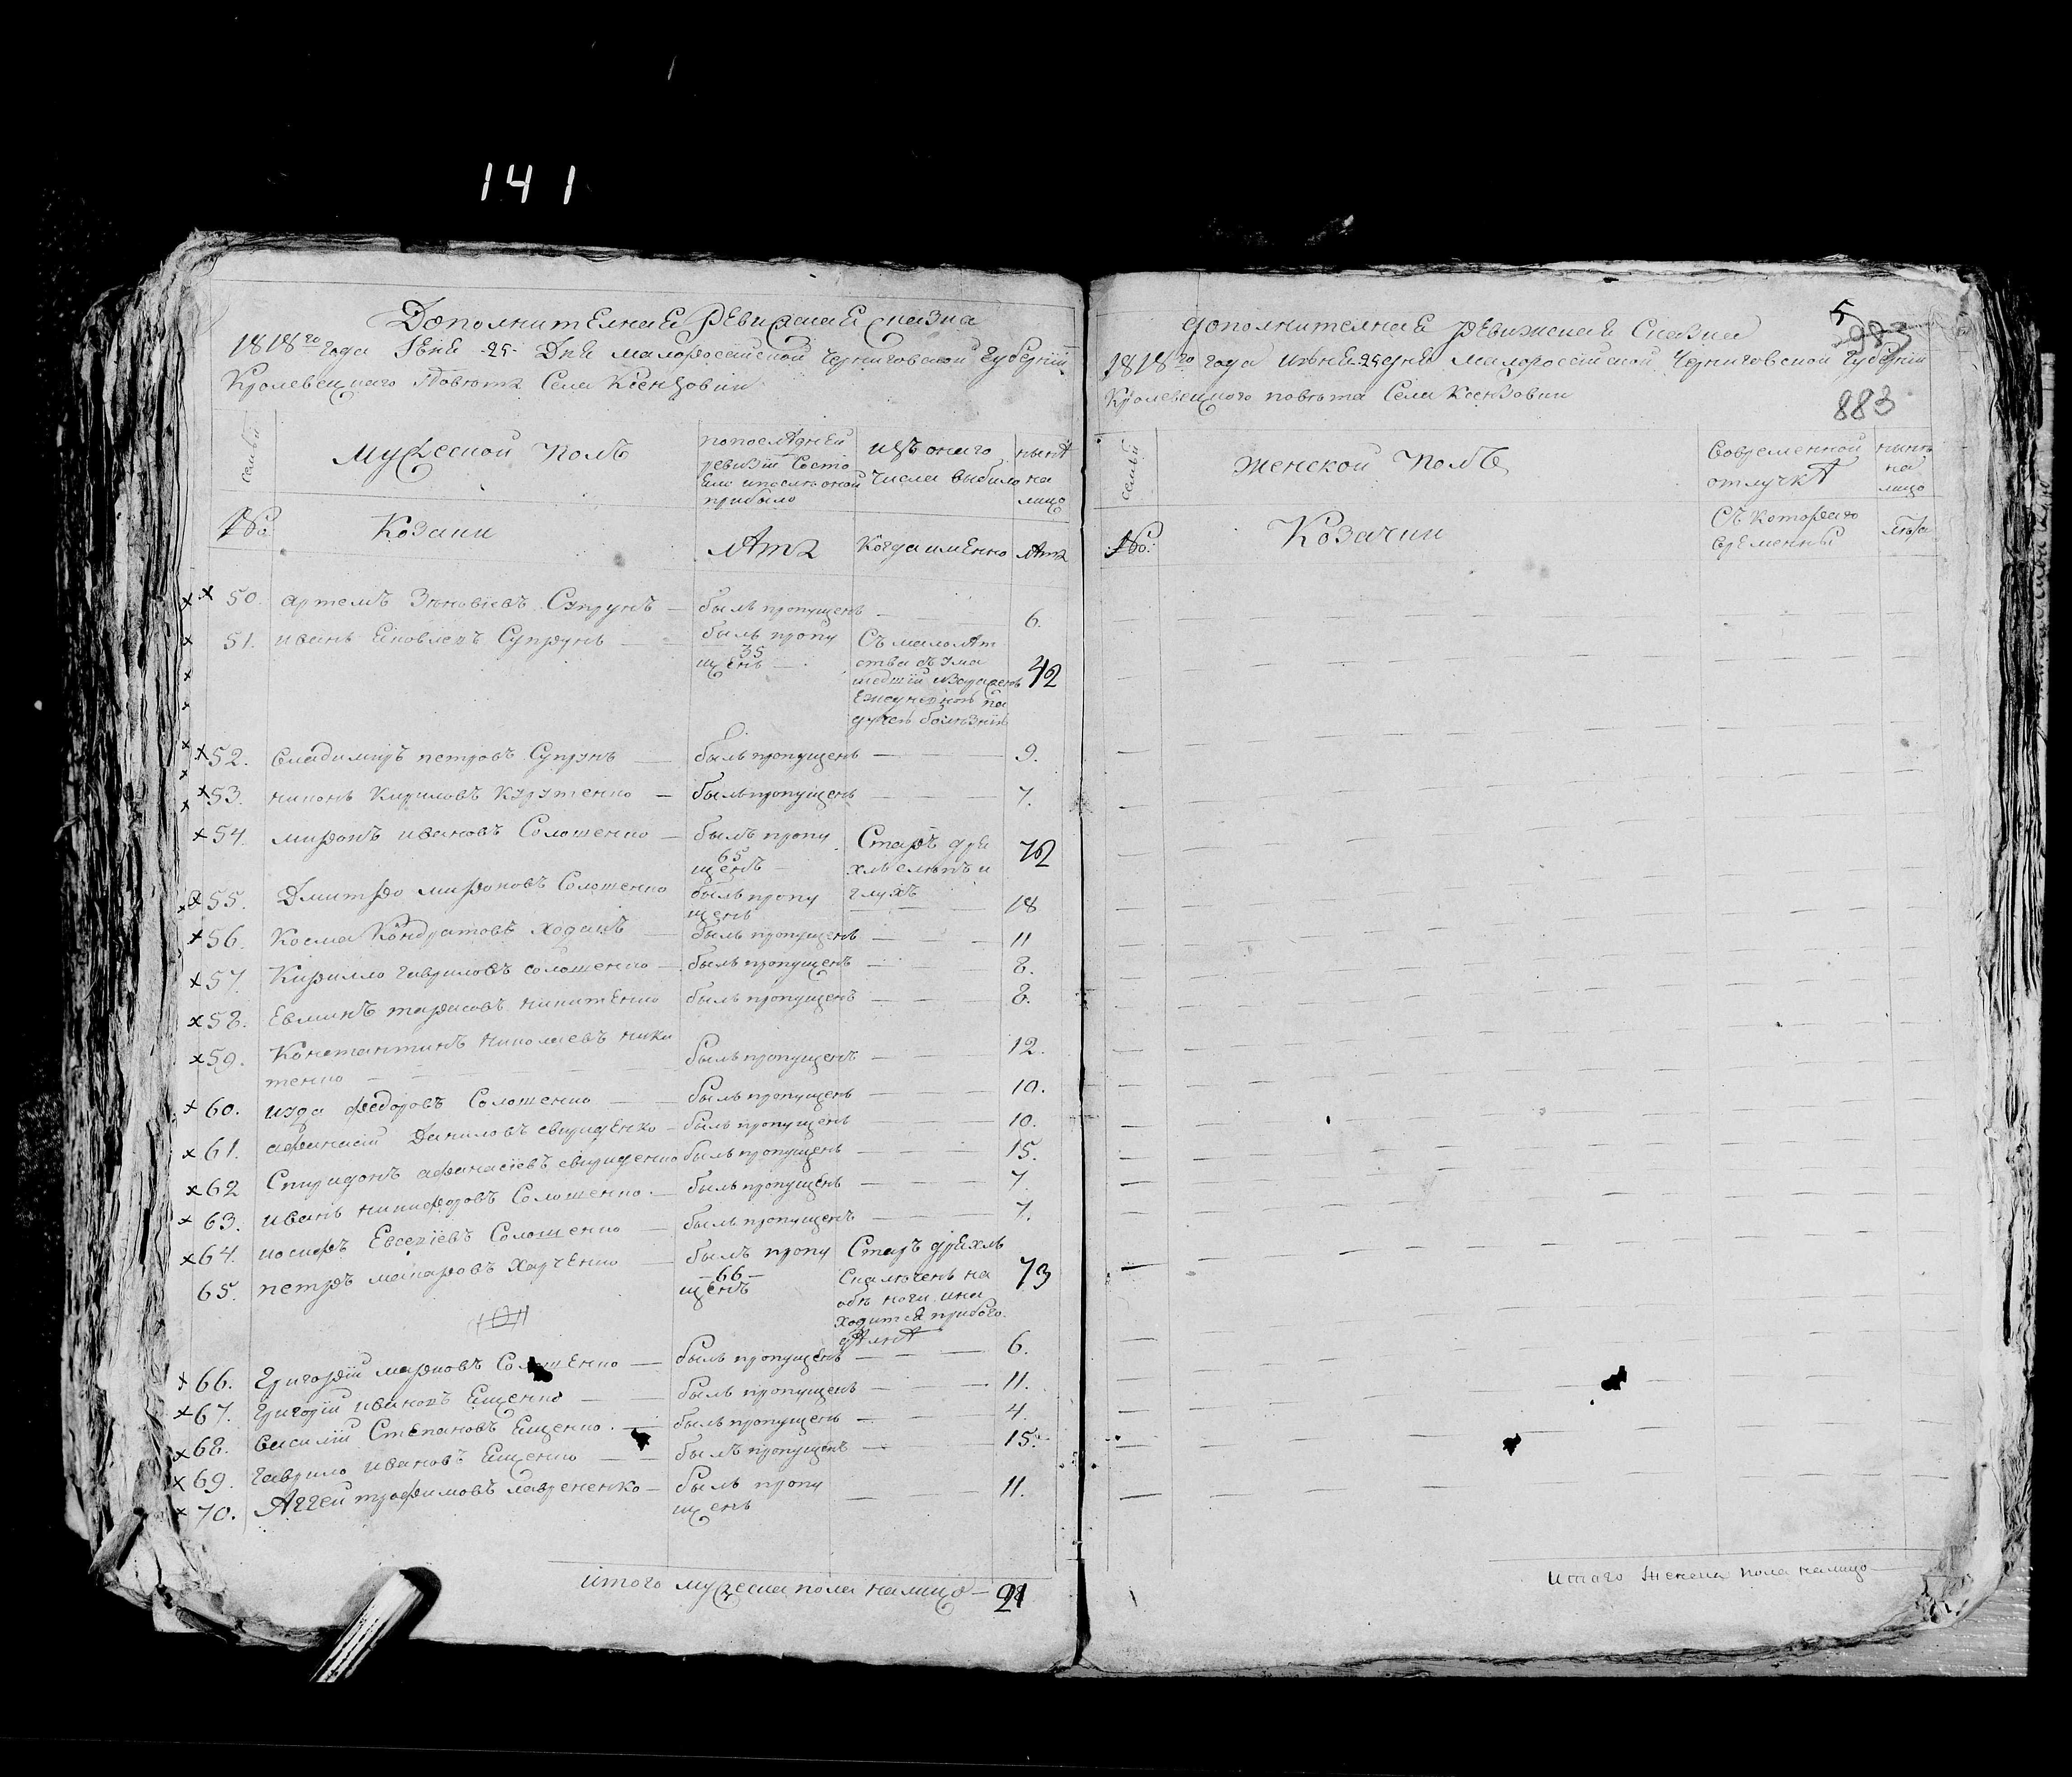 141
Дополнителная Ревизская Сказка
1818го года Іюня 25 Дня малороссійской Черниговской Губерніи
Кролевецкаго Повѣта Села Ксензовки
семьи
Мужеской Полъ
По последней ревизіи Состо
яло и после оной
прибыло
изъ онаго
числа выбило
нынѣ
на
лицо
№
Козаки
лѣта
Когда имѣнно
лѣта
50. артемъ Зѣновіевъ Супрунъ — былъ пропущенъ — 6.
51. иванъ Яковлевъ Супрунъ — былъ пропу
щенъ 35
Съ малолѣт
ства съ ума
шедшій
падучей болѣзніи
42
52. владимиръ петровъ Супрунъ — былъ пропущенъ — 9.
53. никонъ Кириловъ — былъ пропущенъ — 7.
54. миронъ ивановъ Солошенко — былъ пропу
щенъ 65
Старъ дря
хлъ слѣпъ и
глухъ
72
55. Дмитро мироновъ Солошенко былъ пропу
щенъ — 18
56. Косма Кондратовъ Ходакъ — былъ пропущенъ — 11
57. Кирилло гавриловъ солошенко — былъ пропущенъ — 8.
58. тарасовъ никитенко былъ пропущенъ — 8.
59. Константинъ николаевъ ники
тенко — былъ пропущенъ — 12.
60. федоровъ Солошенко — былъ пропущенъ — 10.
61. афанасій Даниловъ свириденко — былъ пропущенъ — 10.
62 Спиридонъ афанасіевъ свириденко былъ пропущенъ — 15.
63. иванъ никифоровъ Солошенко — былъ пропущенъ — 7
64. иосифъ Евсеніевъ Солошенко — былъ пропущенъ — 7.
65. петръ макаровъ Харченко — былъ пропу
щенъ 66
Старъ дряхлъ
на
обѣ ноги и на
ходится при бого
дѣлнѣ
73
66. Григорій марковъ Солошенко — былъ пропущенъ — 6.
67. Григорій ивановъ Ященко — былъ пропущенъ — 11.
68. василій Степановъ Ященко — былъ пропущенъ — 4.
69. гаврило ивановъ Ященко — былъ пропущенъ — 15.
70. Аггей трофимовъ лавененко — былъ пропу
щенъ — 11.
итого мужеска пола налицо — 21
5
983
дополнителная ревижская Сказка
1818го года июня 25 дня малороссійской Черниговской Губерніи
Кролевецкого повѣта Села Ксензовки
883
семьи
женской Полъ
Вовременной
отлучкѣ
нынѣ
на
лицо
№
Козачки
Съ котораго
времены
лѣта
итого женска пола налицо